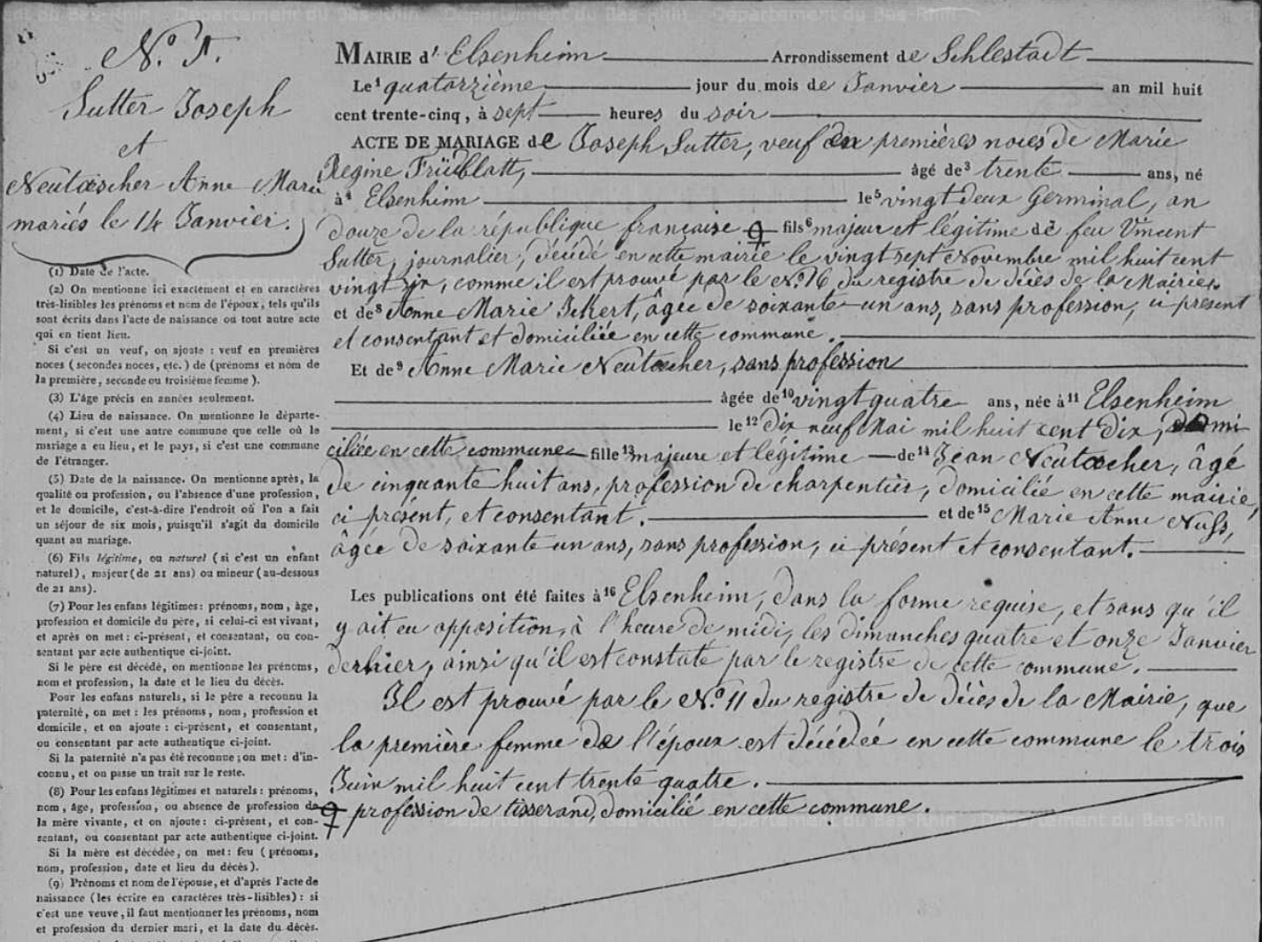 Département du Bas-Rhin
N.° 1.
Sutter Joseph
et
Neutœscher Anne Marie
mariés le 14 Janvier.
(1) Date de l'acte.
(2) On mentionne ici exactement et en caractères
très-lisibles les prénoms et nom de l'époux, tels qu'ils
sont écrits dans l'acte de naissance ou tout autre acte
qui en tient lieu.
Si c'est un veuf, on ajoute : veuf en premières
noces (secondes noces, etc.) de (prénoms et nom de
la première, seconde ou troisième femme).
(3) L'âge précis en années seulement.
(4) Lieu de naissance. On mentionne le départe-
ment, si c'est une autre commune que celle où le
mariage a eu lieu, et le pays, si c'est une commune
de l'étranger.
(5) Date de la naissance. On mentionne après, la
qualité ou profession, ou l'absence d'une profession,
et le domicile, c'est-à-dire l'endroit où l'on a fait
un séjour de six mois, puisqu'il s'agit du domicile
quant au mariage.
(6) Fils légitime, ou naturel (si c'est un enfant
naturel), majeur (de 21 ans) ou mineur (au-dessous
de 21 ans).
(7) Pour les enfans légitimes : prénoms, nom, âge,
profession et domicile du père, si celui-ci est vivant,
et après on met : ci-présent, et consentant, ou con-
sentant par acte authentique ci-joint.
Si le père est décédé, on mentionne les prénoms,
nom et profession, la date et le lieu du décès.
Pour les enfans naturels, si le père a reconnu la
paternité, on met : les prénoms, nom, profession et
domicile, et on ajoute : ci-présent, et consentant,
ou consentant par acte authentique ci-joint.
Si la paternité n'a pas été reconnue ; on met : d'in-
connu, et on passe un trait sur le reste.
(8) Pour les enfans légitimes et naturels : prénoms,
nom, âge, profession, ou absence de profession de
la mère vivante, et on ajoute : ci-présent, et con-
sentant, ou consentant par acte authentique ci-joint.
Si la mère est décédée, on met : feu (prénoms,
nom, profession, date et lieu du décès).
(9) Prénoms et nom de l'épouse, et d'après l'acte de
naissance (les écrire en caractères très-lisibles) : si
c'est une veuve, il faut mentionner les prénoms, nom
et profession du dernier mari, et la date du décès.
MAIRIE d' Elsenheim Arrondissement de Schlestadt
Le¹ quatorzième jour du mois de Janvier an mil huit
cent trente-cinq, à sept heures du soir
ACTE DE MARIAGE de Joseph Sutter, veuf en premières noces de Marie
Regine Früblatt, âgé de³ trente ans, né
à⁴ Elsenheim le⁵ vingt deux Germinal, an
douze de la république française fils⁶ majeur et légitime de feu Vincent
Sutter, journalier, décédé en cette mairie le vingt sept Novembre mil huit cent
vingt six, comme il est prouvé par le N.° 16 du registre de décès de la Mairie,
et de⁸ Anne Marie Ickert, âgée de soixante-un ans, sans profession, ci présent
et consentant et domiciliée en cette commune.
Et de⁹ Anne Marie Neutœcher, sans profession
âgée de¹⁰ vingt quatre ans, née à¹¹ Elsenheim
le¹² dix neuf Mai mil huit cent dix, domi
ciliée en cette commune fille¹³ majeure et légitime de¹⁴ Jean Neutœcher, âgé
de cinquante huit ans, profession de charpentier, domicilié en cette mairie,
ci présent, et consentant. et de¹⁵ Marie Anne Nuss,
âgée de soixante un ans, sans profession, ci présent et consentant.
Les publications ont été faites à¹⁶ Elsenheim, dans la forme requise, et sans qu'il
y ait eu opposition, à l'heure de midi, les dimanches quatre et onze Janvier
dernier, ainsi qu'il est constaté par le registre de cette commune.
Il est prouvé par le N.° 11 du registre de décès de la Mairie, que
la première femme de l'époux est décédée en cette commune le trois
Juin mil huit cent trente quatre.
profession de tisserand, domicilié en cette commune.
Département du Bas-Rhin